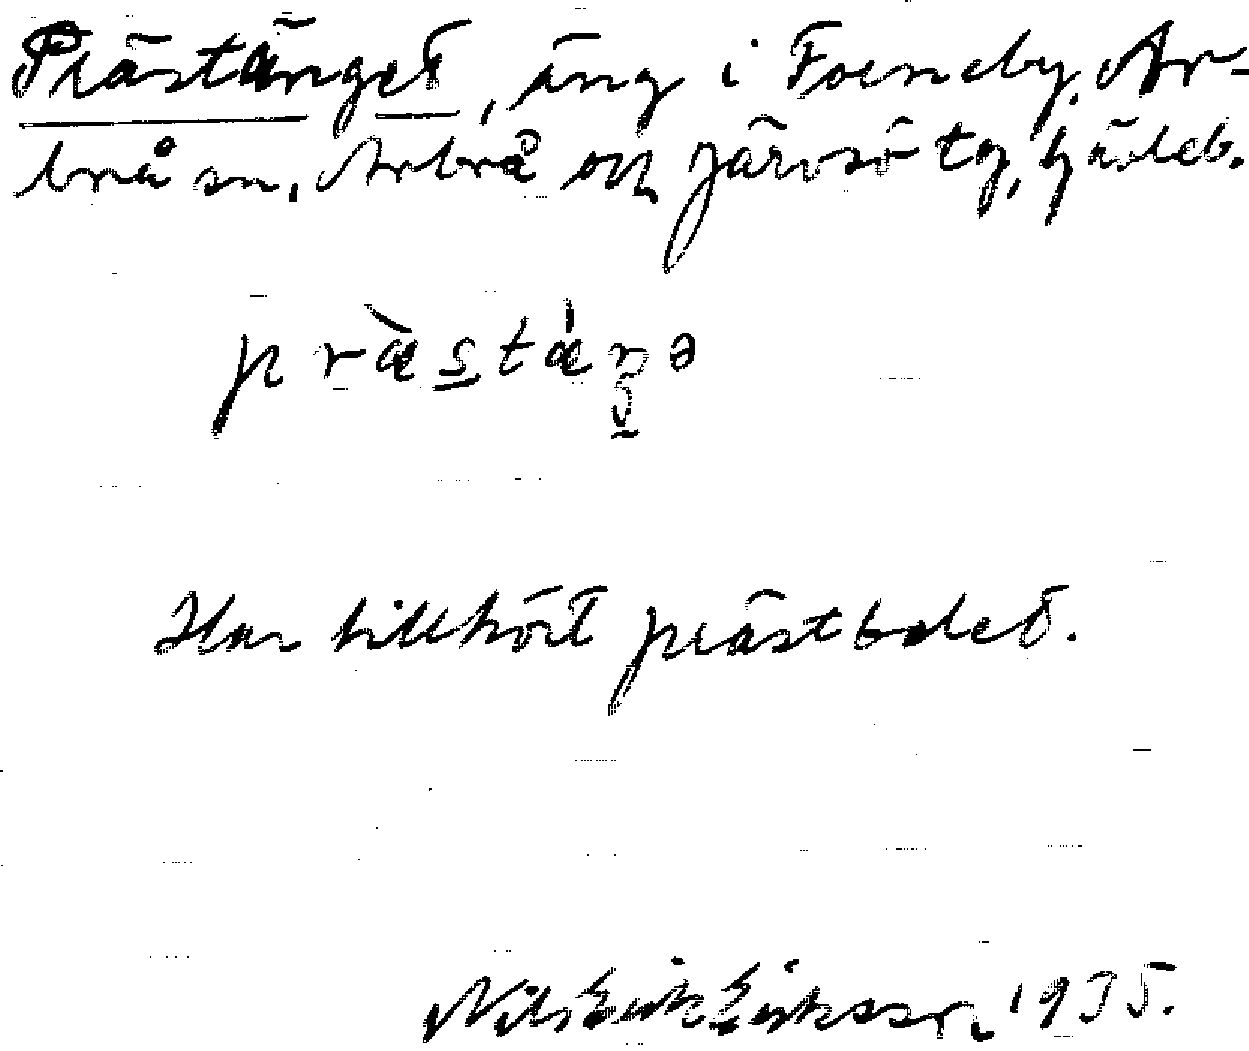 Prästänget, äng i Forneby, Ar-
brå sn, Arbrå och Järvsö tg, Gävleb.
præ̀stǽŋə
Har tillhört prästbolet.
Nils Erik Eriksson 1935.